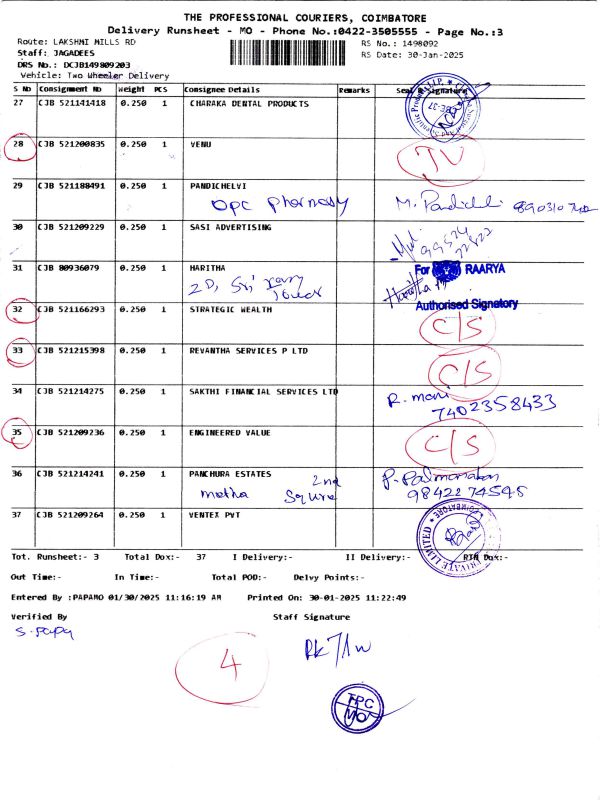 THE PROFESSIONAL COURIERS, COIMBATORE
Delivery Runsheet - MO - Phone No.:0422-3505555 - Page No.:3
Route: LAKSHMI MILLS RD RS No.: 1498092
Staff: JAGADEES RS Date: 30-Jan-2025
DRS No.: DCJB149809203
Vehicle: Two Wheeler Delivery
S No Consignment No Weight PCS Consignee Details Remarks Seal & Signature
27 CJB 521141418 0.250 1 CHARAKA DENTAL PRODUCTS
28 CJB 521200835 0.250 1 VENU TV
29 CJB 521188491 0.250 1 PANDICHELVI
OPC Pharmasy M. Pandichel
30 CJB 521209229 0.250 1 SASI ADVERTISING
31 CJB 80936079 0.250 1 HARITHA For RAARYA
2D, Sri Tower
Authorised Signatory
32 CJB 521166293 0.250 1 STRATEGIC WEALTH C/S
33 CJB 521215398 0.250 1 REVANTHA SERVICES P LTD C/S
34 CJB 521214275 0.250 1 SAKTHI FINANCIAL SERVICES LTD R. mani
7402358433
35 CJB 521209236 0.250 1 ENGINEERED VALUE C/S
36 CJB 521214241 0.250 1 PANCHURA ESTATES 2nd
metha Squire 9842274545
37 CJB 521209264 0.250 1 VENTEX PVT
PRIVATE LIMITED COIMBATORE
Tot. Runsheet:- 3 Total Dox:- 37 I Delivery:- II Delivery:- RTN Dox:-
Out Time:- In Time:- Total POD:- Delvy Points:-
Entered By :PAPAMO 01/30/2025 11:16:19 AM Printed On: 30-01-2025 11:22:49
Verified By Staff Signature
S. Papa
4
TPC
MO